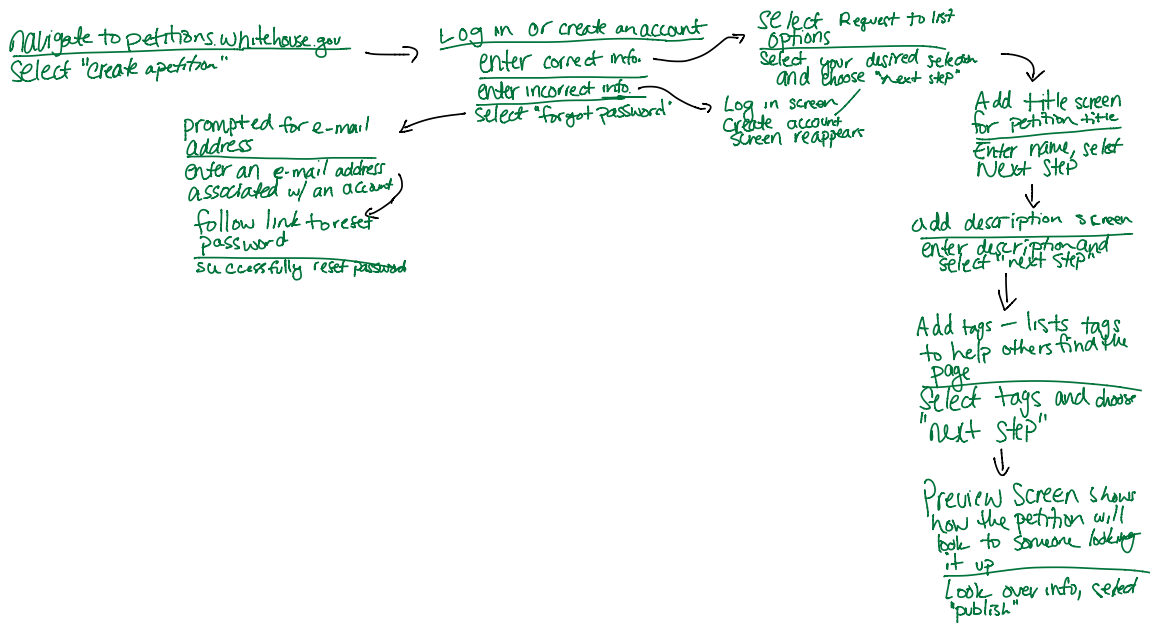 navigate to petitions.whitehouse.gov
select "create a petition"
Log in or create an account
enter correct info.
enter incorrect info.
select "forgot password"
prompted for e-mail
address
enter an e-mail address
associated w/ an account
follow link to reset
password
successfully reset password
select Request to list
options
select your desired selection
and choose "next step"
Log in screen
create account
screen reappears
Add title screen
for petition title
Enter name, select
Next Step
add description screen
enter description and
select "next step"
Add tags - lists tags
to help others find the
page
Select tags and choose
"next step"
Preview Screen shows
how the petition will
look to someone looking
it up
Look over info, select
"publish"